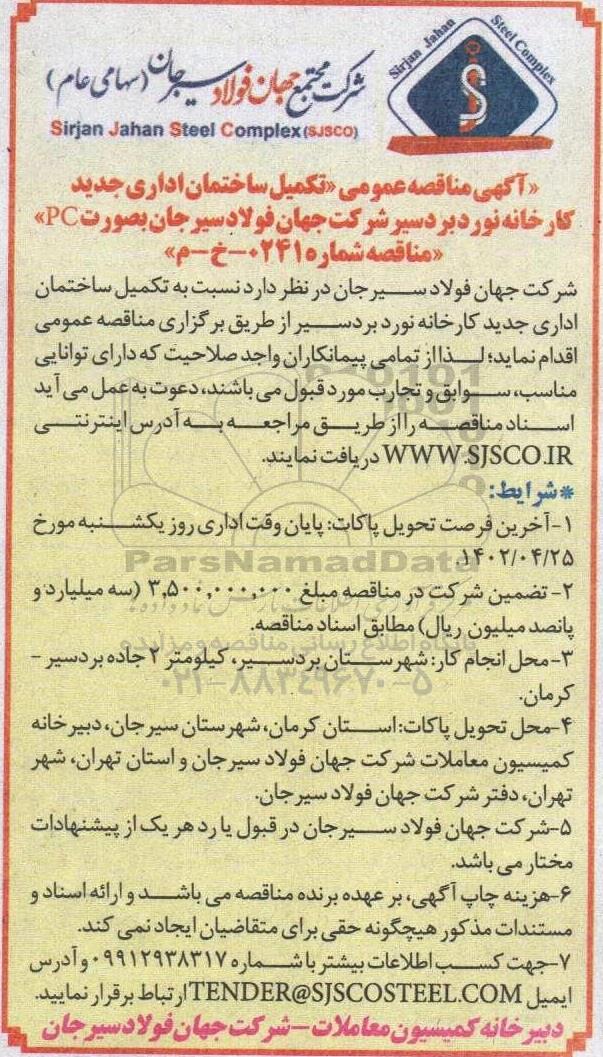 Sirjan Jahan Steel Complex
شرکت مجتمع جهان فولاد سیرجان (سهامی عام)
Sirjan Jahan Steel Complex (SJSCO)
«آگهی مناقصه عمومی «تکمیل ساختمان اداری جدید
کارخانه نورد بردسیر شرکت جهان فولاد سیرجان بصورت PC»
«مناقصه شماره ۰۲۴۱-خ-م»
شرکت جهان فولاد سیرجان در نظر دارد نسبت به تکمیل ساختمان
اداری جدید کارخانه نورد بردسیر از طریق برگزاری مناقصه عمومی
اقدام نماید؛ لذا از تمامی پیمانکاران واجد صلاحیت که دارای توانایی
مناسب، سوابق و تجارب مورد قبول می باشند، دعوت به عمل می آید
اسناد مناقصه را از طریق مراجعه به آدرس اینترنتی
WWW.SJSCO.IR دریافت نمایند.
*شرایط:
۱-آخرین فرصت تحویل پاکات: پایان وقت اداری روز یکشنبه مورخ
۱۴۰۲/۰۴/۲۵.
ParsNamadData
۲- تضمین شرکت در مناقصه مبلغ ۳,۵۰۰,۰۰۰,۰۰۰ (سه میلیارد و
پانصد میلیون ریال) مطابق اسناد مناقصه.
پایگاه اطلاع رسانی مناقصه و مزایده
۳-محل انجام کار: شهرستان بردسیر، کیلومتر ۲ جاده بردسیر -
۰۲۱-۸۸۳۴۹۶۷۰-۵
کرمان.
۴-محل تحویل پاکات: استان کرمان، شهرستان سیرجان، دبیرخانه
کمیسیون معاملات شرکت جهان فولاد سیرجان و استان تهران، شهر
تهران، دفتر شرکت جهان فولاد سیرجان.
۵-شرکت جهان فولاد سیرجان در قبول یا رد هر یک از پیشنهادات
مختار می باشد.
۶-هزینه چاپ آگهی، بر عهده برنده مناقصه می باشد و ارائه اسناد و
مستندات مذکور هیچگونه حقی برای متقاضیان ایجاد نمی کند.
۷-جهت کسب اطلاعات بیشتر با شماره ۰۹۹۱۲۹۳۸۳۱۷ و آدرس
ایمیل TENDER@SJSCOSTEEL.COM ارتباط برقرار نمایید.
دبیرخانه کمیسیون معاملات - شرکت جهان فولاد سیرجان